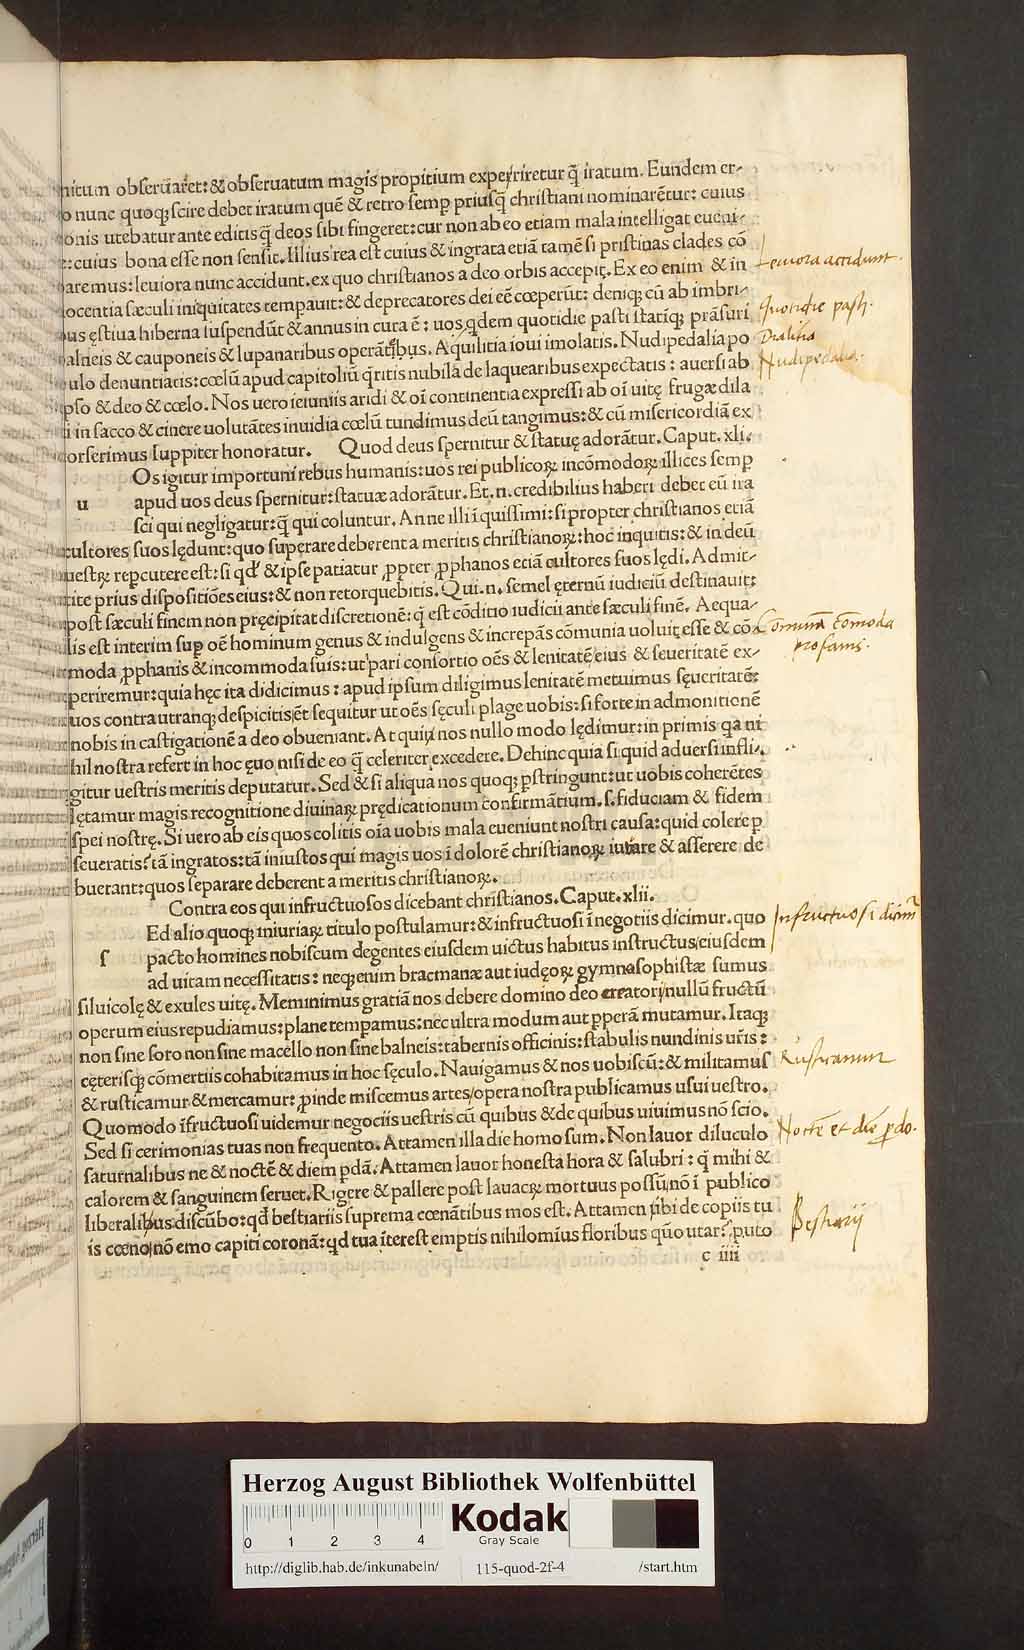 nitum obseruaret: & obseruatum magis propitium experiretur q̄ iratum. Eundem er-
o nunc quoq; scire debet iratum quē & retro semp priusq̄ christiani nominarētur: cuius
onis utebatur ante editis q̄ deos sibi fingeret: cur non ab eo etiam mala intelligat eueni-
e: cuius bona esse non sensit. Illius rea est cuius & ingrata etiā tamē si pristinas clades cō
aremus: leuiora nunc accidunt. ex quo christianos a deo orbis accepit. Ex eo enim & in
ocentia sæculi iniquitates tempauit: & deprecatores dei eē cœperūt: deniq; cū ab imbri-
us ęstiua hiberna suspendūt & annus in cura ē: uos qdem quotidie pasti statiq; prāsuri
alneis & cauponeis & lupanaribus operātibus. Aquilitia ioui imolatis. Nudipedalia po
ulo denuntiatis: cœlū apud capitoliū q̄ritis nubila de laquearibus expectatis: auersi ab
pso & deo & cœlo. Nos uero ieiuniis aridi & oī continentia expressi ab oī uitę frugæ dila
i in sacco & cinere uolutātes inuidia cœlū tundimus deū tangimus: & cū misericordiā ex
orserimus iuppiter honoratur. Quod deus spernitur & statuę adorātur. Caput. xli.
Os igitur importuni rebus humanis: uos rei publicoꝝ incōmodoꝝ illices semp
u apud uos deus spernitur: statuæ adorātur. Et. n. credibilius haberi debet eū ira
sci qui negligatur: q̄ qui coluntur. An ne illi iquissimi: si propter christianos etiā
cultores suos lędunt: quo superare deberent a meritis christianoꝝ: hoc inquitis: & in deū
uestꝝ repcutere est: si qd' & ipse patiatur ppter pphanos etiā cultores suos lędi. Admit-
tite prius dispositiōes eius: & non retorquebitis. Qui. n. semel ęternū iudiciū destinauit:
post sæculi finem non pręcipitat discretionē: q̄ est cōditio iudicii ante sæculi finē. Aequa-
lis est interim sup oē hominum genus & indulgens & increpās cōmunia uoluit esse & cō
moda pphanis & incommoda suis: ut pari consortio oēs & lenitatē eius & seueritatē ex-
periremur: quia hęc ita didicimus: apud ipsum diligimus lenitatē metuimus sęueritatē:
uos contra utranq; despicitis: et sequitur ut oēs sęculi plage uobis: si forte in admonitionē
nobis in castigationē a deo obueniant. At qui nos nullo modo lędimur: in primis qa ni
hil nostra refert in hoc ęuo nisi de eo q̄ celeriter excedere. Dehinc quia si quid aduersi infli-
gitur uestris meritis deputatur. Sed & si aliqua nos quoq; pstringunt: ut uobis coherētes
lętamur magis recognitione diuinaꝝ prędicationum confirmātium. s. fiduciam & fidem
spei nostrę. Si uero ab eis quos colitis oīa uobis mala eueniunt nostri causa: quid colere p
seueratis? tā ingratos: tā iniustos qui magis uos i dolorē christianoꝝ iuuare & asserere de
buerant: quos separare deberent a meritis christianoꝝ.
Contra eos qui infructuosos dicebant christianos. Caput. xlii.
Ed alio quoq; iniuriaꝝ titulo postulamur: & infructuosi i negotiis dicimur. quo
s pacto homines nobiscum degentes eiusdem uictus habitus instructus/eiusdem
ad uitam necessitatis: neq; enim bracmanæ aut iudęoꝝ gymnosophistæ sumus
siluicolę & exules uitę. Meminimus gratiā nos debere domino deo creatori/nullū fructū
operum eius repudiamus: plane tempamus: nec ultra modum aut pperā mutamur. Itaq;
non sine foro non sine macello non sine balneis: tabernis officinis: stabulis nundinis ur̄is:
cęterisq; cōmertiis cohabitamus in hoc sęculo. Nauigamus & nos uobiscū: & militamus
& rusticamur & mercamur: pinde miscemus artes/opera nostra publicamus usui uestro.
Quomodo ifructuosi uidemur negociis uestris cū quibus & de quibus uiuimus nō scio.
Sed si cerimonias tuas non frequento. Attamen illa die homo sum. Non lauor diluculo
saturnalibus ne & noctē & diem pdā. Attamen lauor honesta hora & salubri: q̄ mihi &
calorem & sanguinem seruet. Rigere & pallere post lauacꝝ mortuus possū/nō i publico
liberalibus discūbo: qd bestiariis suprema cœnātibus mos est. Attamen ubi de copiis tu
is cœno/nō emo capiti coronā: qd tua iterest emptis nihilomius floribus quo utar? puto
c iiii
Leuiora accidunt.
Quotidie pasti.
Nudipedalia.
Comunia cōmoda
profanis.
Infructuosi dicim̄
Rusticamur
Noctē et diē pdo.
Bestiarij
Herzog August Bibliothek Wolfenbüttel
0 1 2 3 4
Kodak
Gray Scale
http://diglib.hab.de/inkunabeln/ 115-quod-2f-4 /start.htm